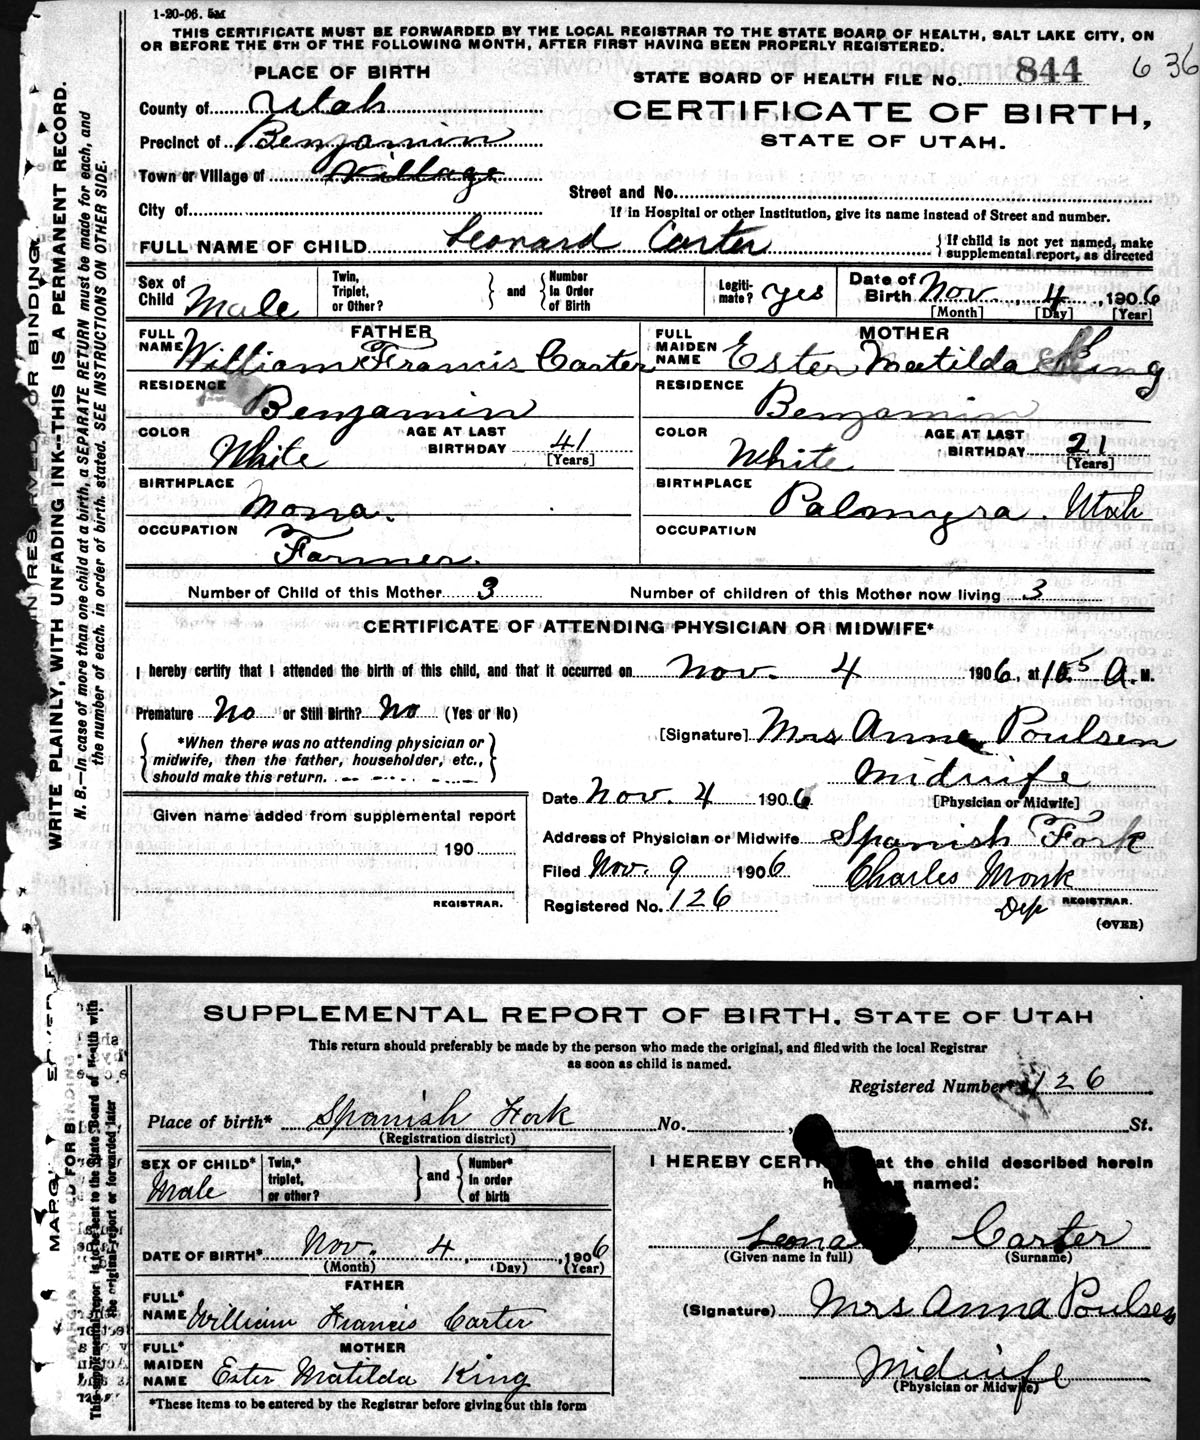 1-20-06. 5M
THIS CERTIFICATE MUST BE FORWARDED BY THE LOCAL REGISTRAR TO THE STATE BOARD OF HEALTH, SALT LAKE CITY, ON
OR BEFORE THE 5TH OF THE FOLLOWING MONTH, AFTER FIRST HAVING BEEN PROPERLY REGISTERED.
PLACE OF BIRTH
STATE BOARD OF HEALTH FILE No. 844 636
County of Utah
CERTIFICATE OF BIRTH,
STATE OF UTAH.
Precinct of Benjamin
Town or Village of Village
Street and No.
City of
If in Hospital or other Institution, give its name instead of Street and number.
FULL NAME OF CHILD Leonard Carter
If child is not yet named, make
supplemental report, as directed
Sex of Child Male
Twin, Triplet, or Other? and Number In Order of Birth
Legiti-mate? yes
Date of Birth Nov 4, 1906
[Month] [Day] [Year]
FATHER
FULL NAME William Francis Carter
MOTHER
FULL MAIDEN NAME Ester Matilda King
RESIDENCE Benjamin
RESIDENCE Benjamin
COLOR White AGE AT LAST BIRTHDAY 41 [Years]
COLOR White AGE AT LAST BIRTHDAY 21 [Years]
BIRTHPLACE Mona.
BIRTHPLACE Palmyra. Utah
OCCUPATION Farmer.
OCCUPATION
Number of Child of this Mother 3 Number of children of this Mother now living 3
CERTIFICATE OF ATTENDING PHYSICIAN OR MIDWIFE*
I hereby certify that I attended the birth of this child, and that it occurred on Nov. 4 1906, at A. M.
Premature No or Still Birth? No (Yes or No)
*When there was no attending physician or
midwife, then the father, householder, etc.,
should make this return.
[Signature] Mrs Anna Poulsen
Midwife
[Physician or Midwife]
Date Nov. 4 1906
Given name added from supplemental report
190
REGISTRAR.
Address of Physician or Midwife Spanish Fork
Filed Nov. 9 1906 Charles Monk
Registered No. 126 Dep REGISTRAR.
(OVER)
MARGIN RESERVED FOR BINDING.
WRITE PLAINLY, WITH UNFADING INK--THIS IS A PERMANENT RECORD.
N. B.--In case of more than one child at a birth, a SEPARATE RETURN must be made for each, and
the number of each, in order of birth, stated. SEE INSTRUCTIONS ON OTHER SIDE.
SUPPLEMENTAL REPORT OF BIRTH, STATE OF UTAH
This return should preferably be made by the person who made the original, and filed with the local Registrar
as soon as child is named.
Registered Number 126
Place of birth* Spanish Fork No. St.
(Registration district)
SEX OF CHILD* Male
Twin,* triplet, or other? and Number* In order of birth
I HEREBY CERT at the child described herein
named:
DATE OF BIRTH* Nov. 4, 1906
(Month) (Day) (Year)
Leona Carter
(Given name in full) (Surname)
FATHER
FULL* NAME William Francis Carter
(Signature) Mrs Anna Poulsen
MOTHER
FULL* MAIDEN NAME Ester Matilda King
Midwife
(Physician or Midwife)
*These items to be entered by the Registrar before giving out this form
MARGIN RESERVED FOR BINDING
This supplemental report is to be sent to the State Board of Health with
the original report or forwarded later